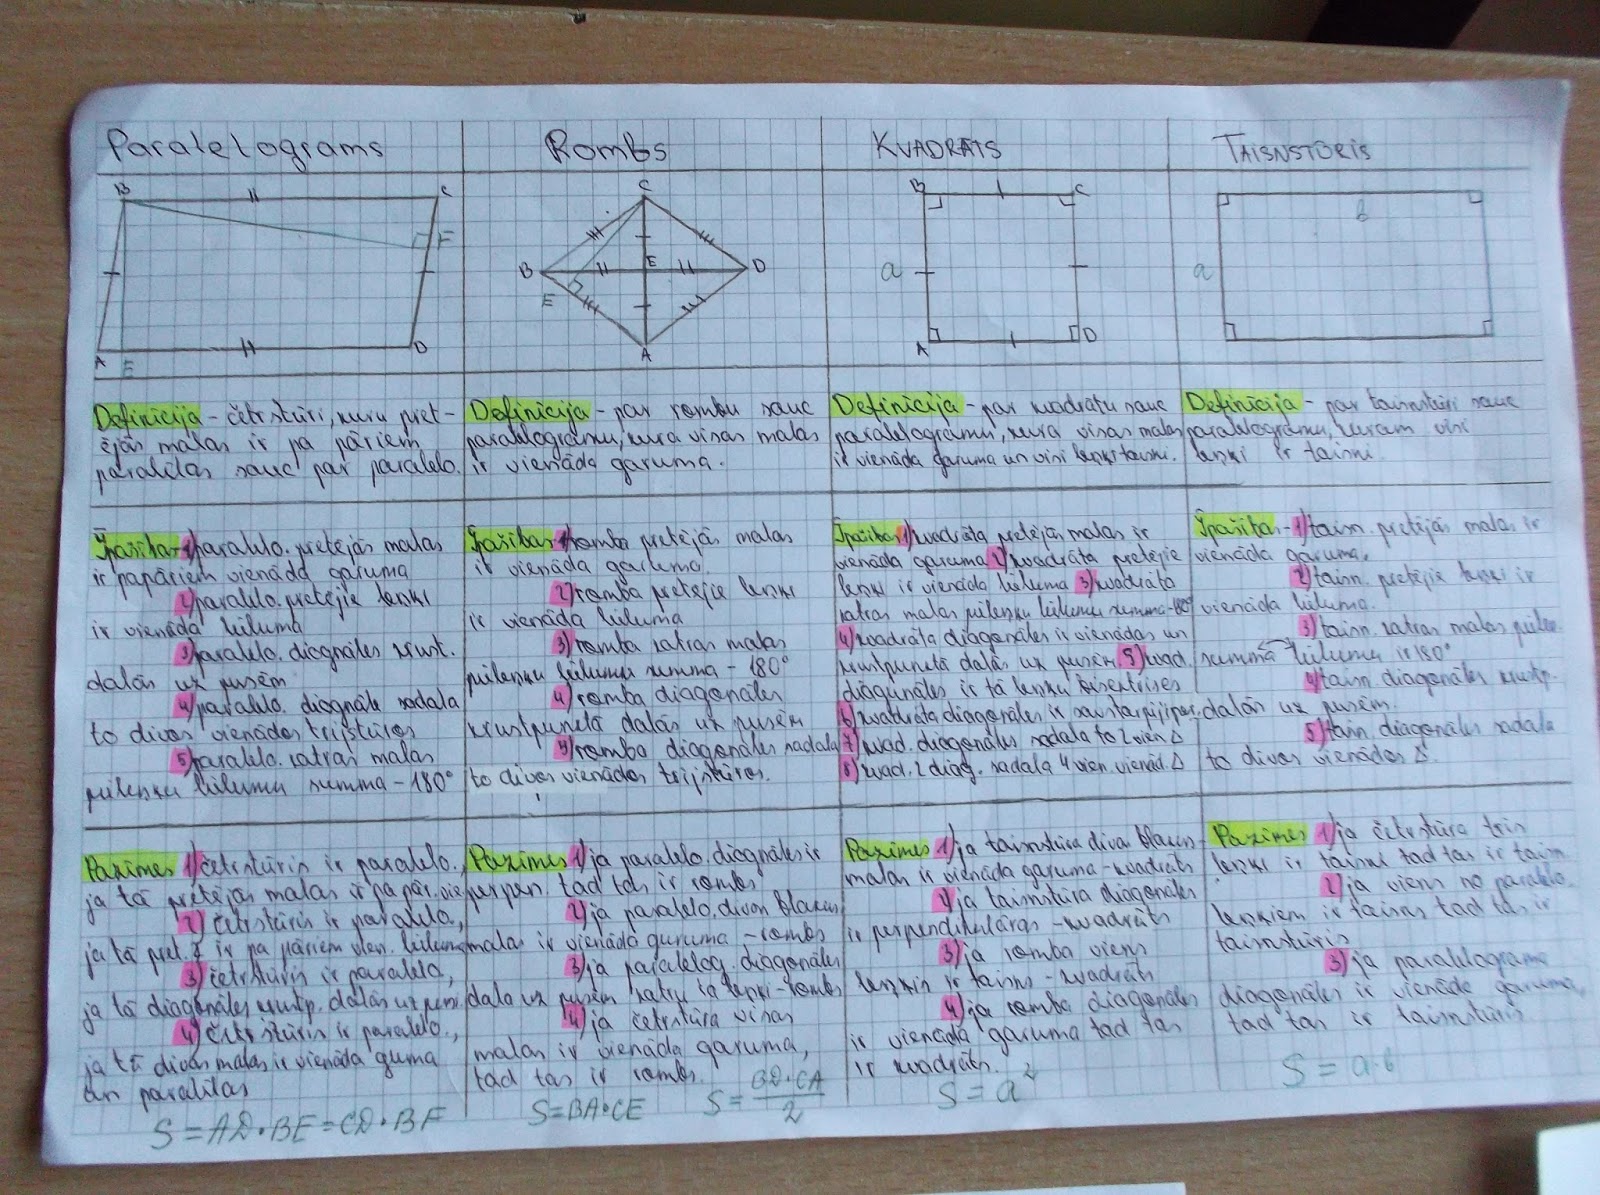 Paralelograms
B
C
F
A
E
D
Definīcija - četrstūri, kuru pret-
ējās malas ir pa pāriem
paralēlas sauc par paralelo.
Īpašības 1) paralelo. pretējās malas
ir papāriem vienāda garuma
2) paralelo. pretējie leņķi
ir vienāda lieluma
3) paralelo. diognāles krust.
dalās uz pusēm
4) paralelo. diognāle sadala
to divos vienādos trijstūros
5) paralelo. katras malas
pieleņķu lielumu summa - 180°
Pazīmes 1) četrstūris ir paralelo.,
ja tā pretējās malas ir pa pār. vie
2) četrstūris ir paralelo,
ja tā pret. ∡ ir pa pāriem vien. lielum
3) četrstūris ir paralelo,
ja tā diagonāles krustp. dalās uz pusē
4) četrstūris ir paralelo.,
ja tā divas malas ir vienāda guma
un paralēlas
S = AD · BE = CD · BF
Rombs
C
B
E
D
E
A
Definīcija - par rombu sauc
paralelogramu, kura visas malas
ir vienāda garuma.
Īpašības 1) romba pretējās malas
ir vienāda garuma.
2) romba pretējie leņķi
ir vienāda lieluma
3) romba katras malas
pieleņķu lielumu summa - 180°
4) romba diagonāles
krustpunktā dalās uz pusēm
5) romba diagonāles sadala
to divos vienādos trijstūros.
Pazīmes 1) ja paralelo. diognāles ir
perpen. tad tas ir rombs
2) ja paralelo, divas blakus
malas ir vienāda garuma - rombs
3) ja paralelog. diagonāles
dala uz pusēm katru tā leņķi - rombs
4) ja četrstūra visas
malas ir vienāda garuma,
tad tas ir rombs.
S = BA · CE
S = BD · CA
2
KVADRĀTS
B
C
a
A
D
Definīcija - par kvadrātu sauc
paralelogramu, kura visas malas
ir vienāda garuma un visi leņķi taisni.
Īpašības 1) kvadrāta pretējās malas ir
vienāda garuma 2) kvadrāta pretējie
leņķi ir vienāda lieluma 3) kvadrāta
katras malas pieleņķu lielumu summa - 180°
4) kvadrāta diagonāles ir vienādas un
krustpunktā dalās uz pusēm 5) kvad.
diagunāles ir tā leņķu bisektrises
6) kvadrāta diagonāles ir
7) kvad. diagonāles sadala to 2 vien Δ
8) kvad. 2 diag. sadala 4 vien. vienād. Δ
Pazīmes 1) ja taisnstūra divas blakus
malas ir vienāda garuma - kvadrāts
2) ja taisnstūra diagonāles
ir perpendikulāras - kvadrāts
3) ja romba viens
leņķis ir taisns - kvadrāts
4) ja romba diagonāles
ir vienāda garuma tad tas
ir kvadrāts.
S = a²
TAISNSTŪRIS
b
a
Definīcija - par taisnstūri sauc
paralelogramu, kuram visi
leņķi ir taisni.
Īpašība - 1) taisn. pretējās malas ir
vienāda garuma,
2) taisn. pretējie leņķi ir
vienāda lieluma.
3) taisn. katras malas pieleņ.
summa lielumu ir 180°
4) taisn. diagonāles krustp.
dalās uz pusēm.
5) taisn. diagonāles sadala
to divos vienādos Δ.
Pazīmes 1) ja četrstūra trīs
leņķi ir taisni tad tas ir taisn.
2) ja viens no paralelo.
leņķiem ir taisns tad tas ir
taisnstūris
3) ja paralelograma
diagonāles ir vienāda garuma,
tad tas ir taisnstūris.
S = a · b